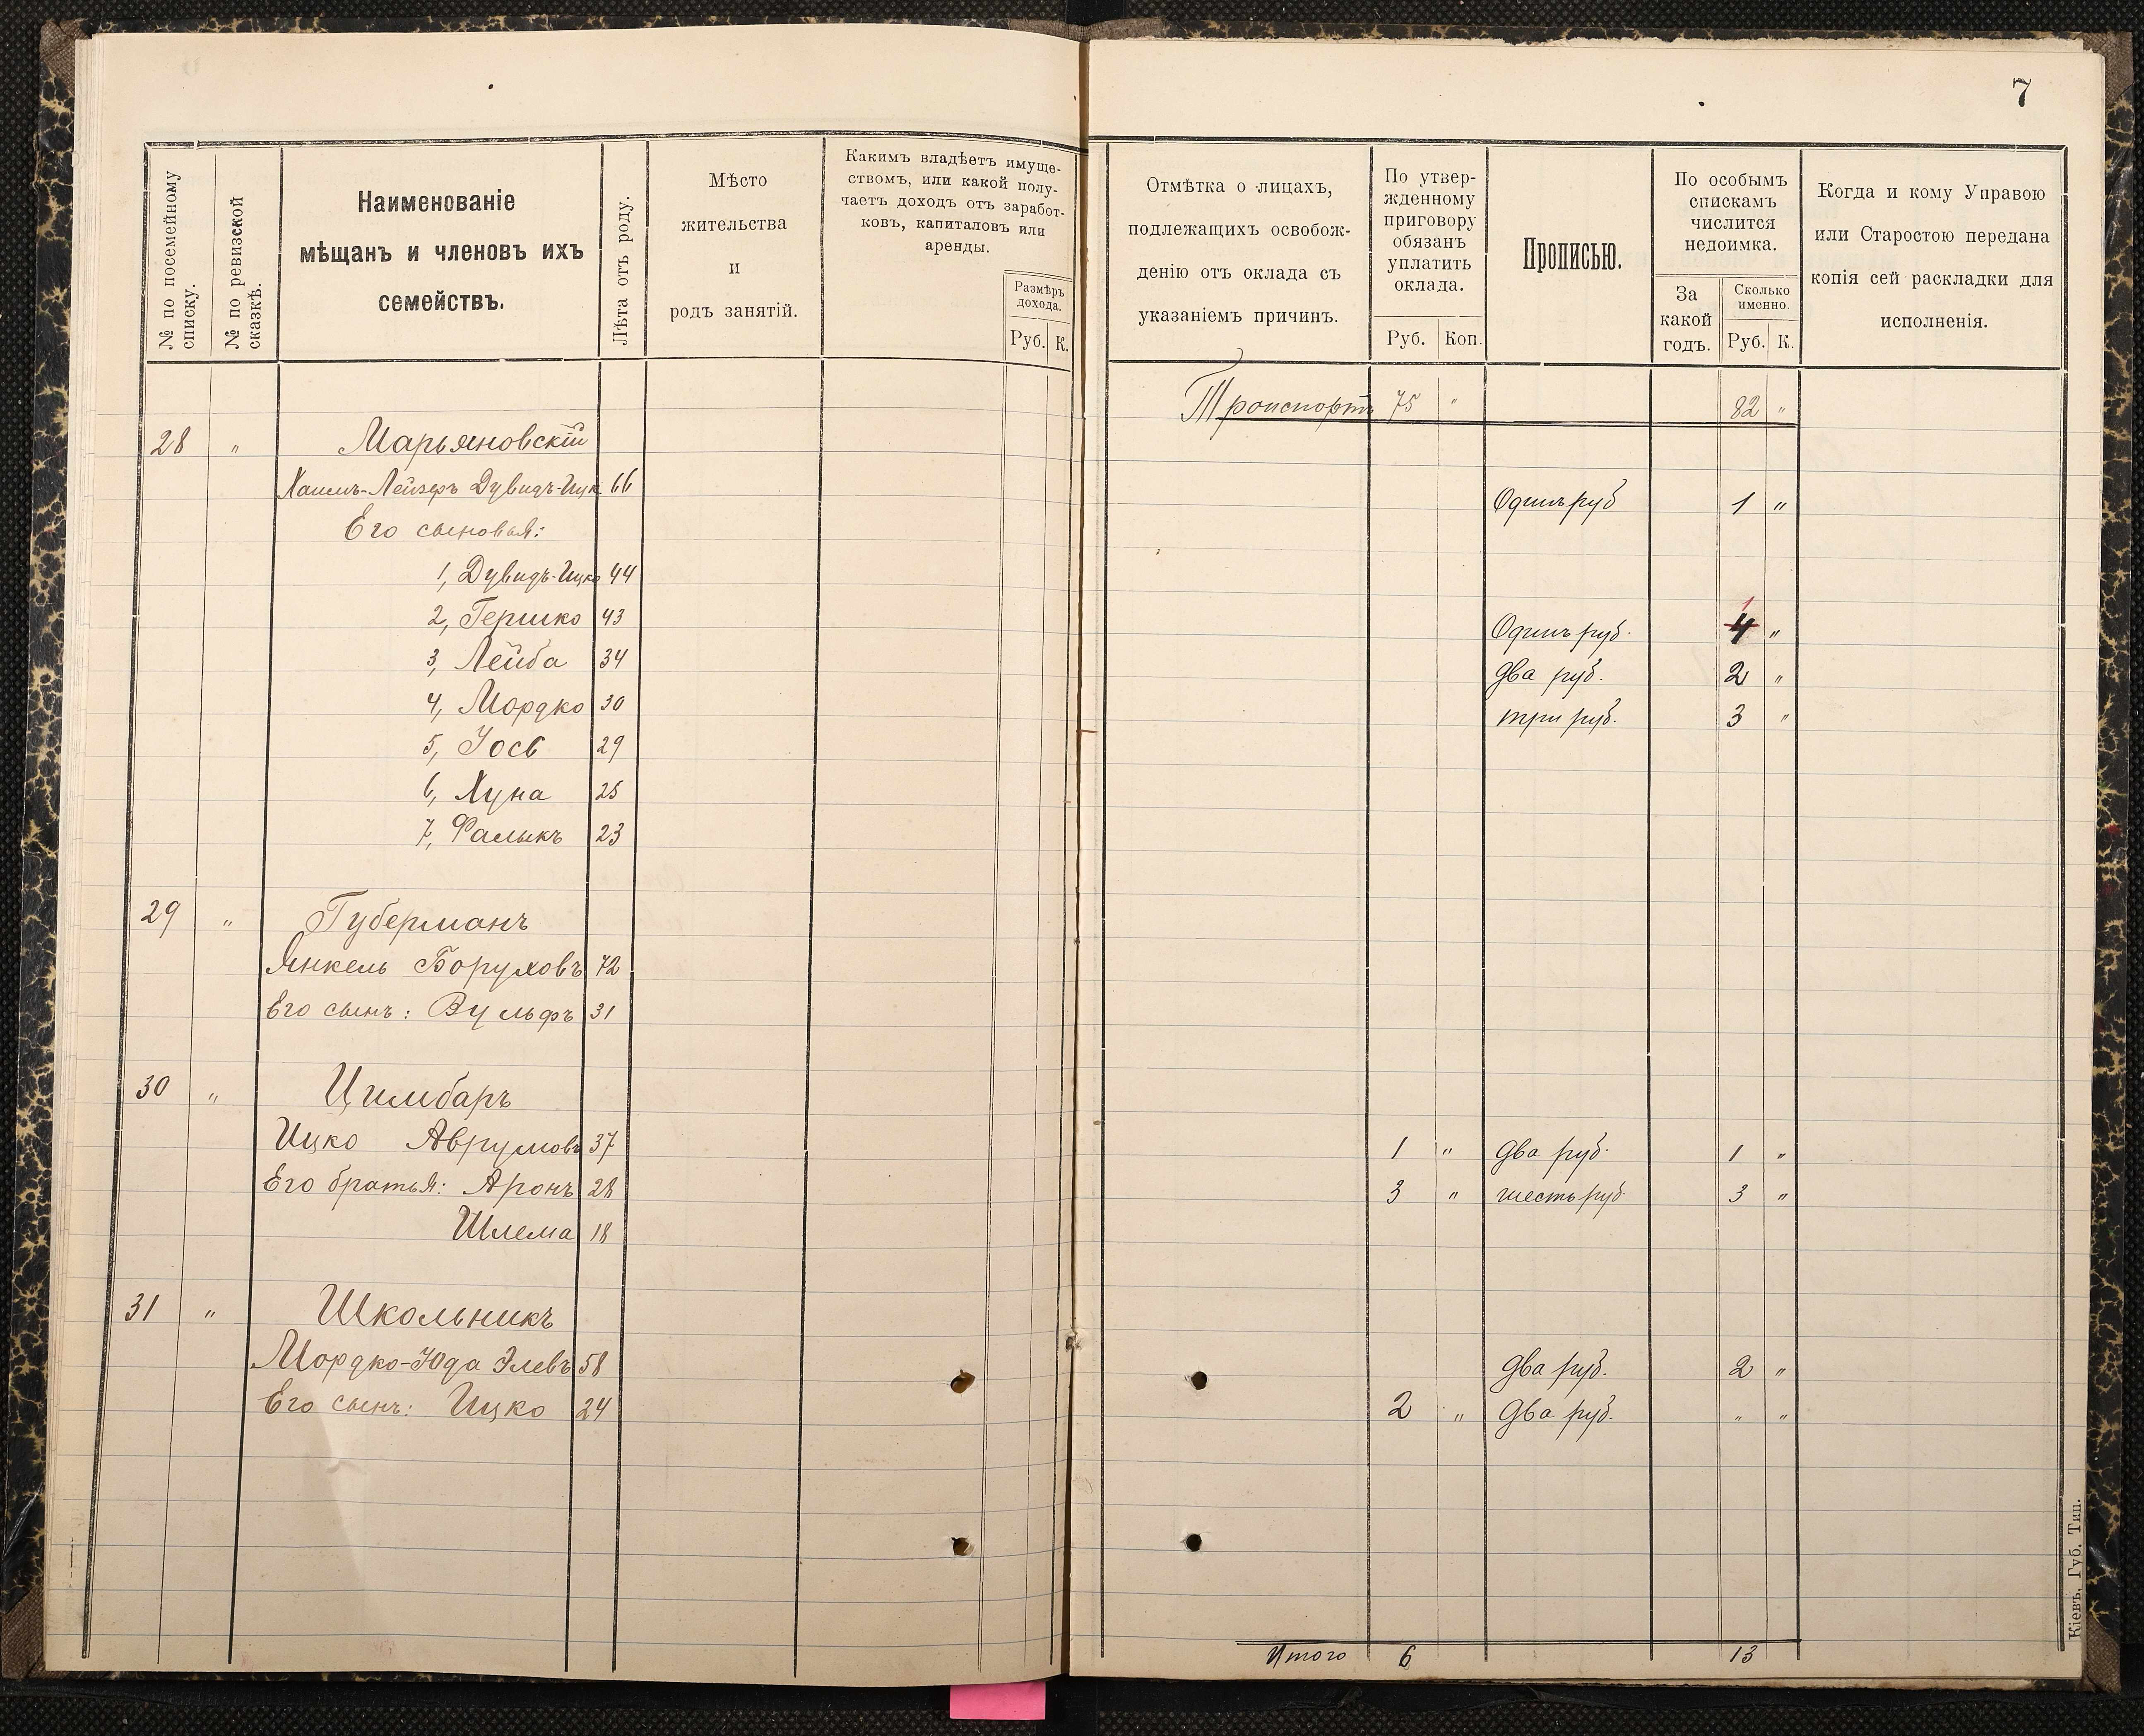 7
№ по посемейному списку.
№ по ревизской сказкѣ.
Наименованіе
мѣщанъ и членовъ ихъ
семействъ.
Лѣта отъ роду.
Мѣсто
жительства
и
родъ занятій.
Какимъ владѣетъ имуще-
ствомъ, или какой полу-
чаетъ доходъ отъ заработ-
ковъ, капиталовъ или
аренды.
Размѣръ
дохода.
Руб. К.
Отмѣтка о лицахъ,
подлежащихъ освобож-
денію отъ оклада съ
указаніемъ причинъ.
По утвер-
жденному
приговору
обязанъ
уплатить
оклада.
Руб. Коп.
Прописью.
По особымъ
спискамъ
числится
недоимка.
За
какой
годъ.
Сколько
именно.
Руб. К.
Когда и кому Управою
или Старостою передана
копія сей раскладки для
исполненія.
Транспортъ 75 " 82 "
28 " Марьяновскій
Хаимъ-Лейзеръ Дувидъ-Ицк. 66 Одинъ руб 1 "
Его сыновья:
1, Дувидъ-Ицко 44
2, Гершко 43 Одинъ руб. 4 1 "
3, Лейба 34 два руб. 2 "
4, Мордко 30 три руб. 3 "
5, Іось 29
6, Хуна 25
7, Фалыкъ 23
29 " Губерманъ
Янкель Боруховъ 72
Его сынъ: Вульфъ 31
30 " Цимбаръ
Ицко Аврумовъ 37 1 " два руб. 1 "
Его братья: Аронъ 28 3 " шесть руб. 3 "
Шлема 18
31 " Школьникъ
Мордко-Юда Элевъ 58 два руб. 2 "
Его сынъ: Ицко 24 2 " Два руб. " "
Итого 6 13
Кіевъ, Губ. Тип.